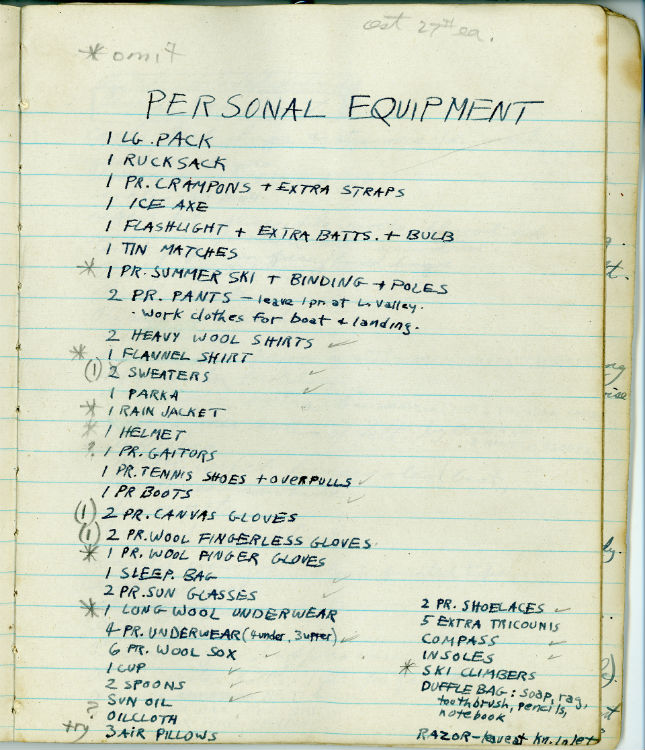 est 27# ea.
* omit
PERSONAL EQUIPMENT
1 LG. PACK
1 RUCKSACK
1 PR. CRAMPONS + EXTRA STRAPS
1 ICE AXE
1 FLASHLIGHT + EXTRA BATTS. + BULB
1 TIN MATCHES
* 1 PR. SUMMER SKI + BINDING + POLES
2 PR. PANTS - leave 1 pr. at Valley.
· Work clothes for boat & landing.
2 HEAVY WOOL SHIRTS ✓
* 1 FLANNEL SHIRT
(1) 2 SWEATERS ✓
1 PARKA ✓
* 1 RAIN JACKET
* 1 HELMET
? 1 PR. GAITORS
1 PR. TENNIS SHOES + OVERPULLS ✓
1 PR BOOTS ✓
(1) 2 PR. CANVAS GLOVES
(1) 2 PR. WOOL FINGERLESS GLOVES
* 1 PR. WOOL FINGER GLOVES
1 SLEEP. BAG ✓
2 PR. SUN GLASSES ✓
* 1 LONG WOOL UNDERWEAR
4 PR. UNDERWEAR (4 under, 3 upper) ✓
6 PR. WOOL SOX ✓
1 CUP ✓
2 SPOONS ✓
SUN OIL ✓
? OILCLOTH
try) 3 AIR PILLOWS
2 PR. SHOELACES ✓
5 EXTRA TRICOUNIS
COMPASS ✓
INSOLES ✓
* SKI CLIMBERS
DUFFLE BAG: soap, rag,
toothbrush, pencils,
notebook
RAZOR - leave at Kn. Inlet?